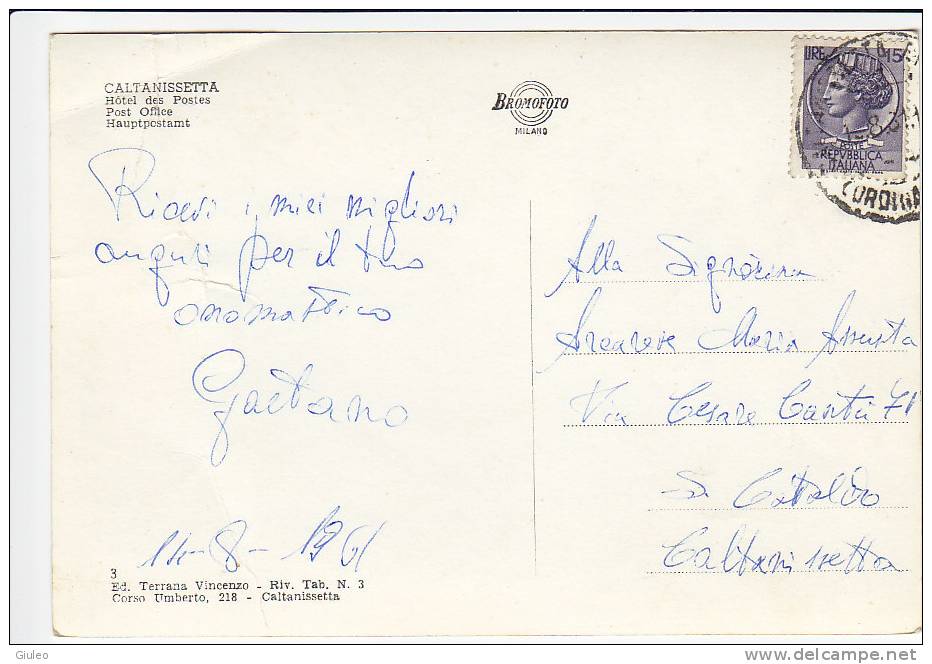 CALTANISSETTA
Hôtel des Postes
Post Office
Hauptpostamt
BROMOFOTO
MILANO
LIRE 15
POSTE
REPVBBLICA
ITALIANA
Ricevi i miei migliori
auguri per il tuo
onomastico
Gaetano
14-8-1961
3
Ed. Terrana Vincenzo - Riv. Tab. N. 3
Corso Umberto, 218 - Caltanissetta
Alla Signorina
Maria Assunta
Via Cesare Cantù 71
S. Cataldo
Caltanissetta
Giuleo
delcampe.net